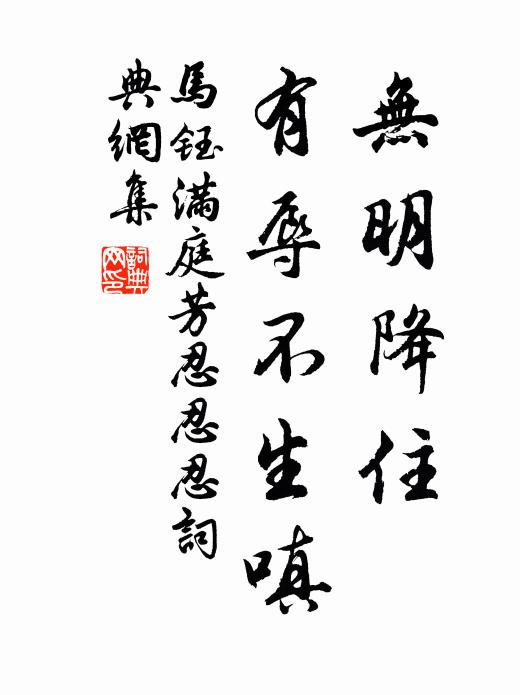 無明降住
有辱不生嗔
馬鈺滿庭芳忍忍忍詞
典網集
詞典網印